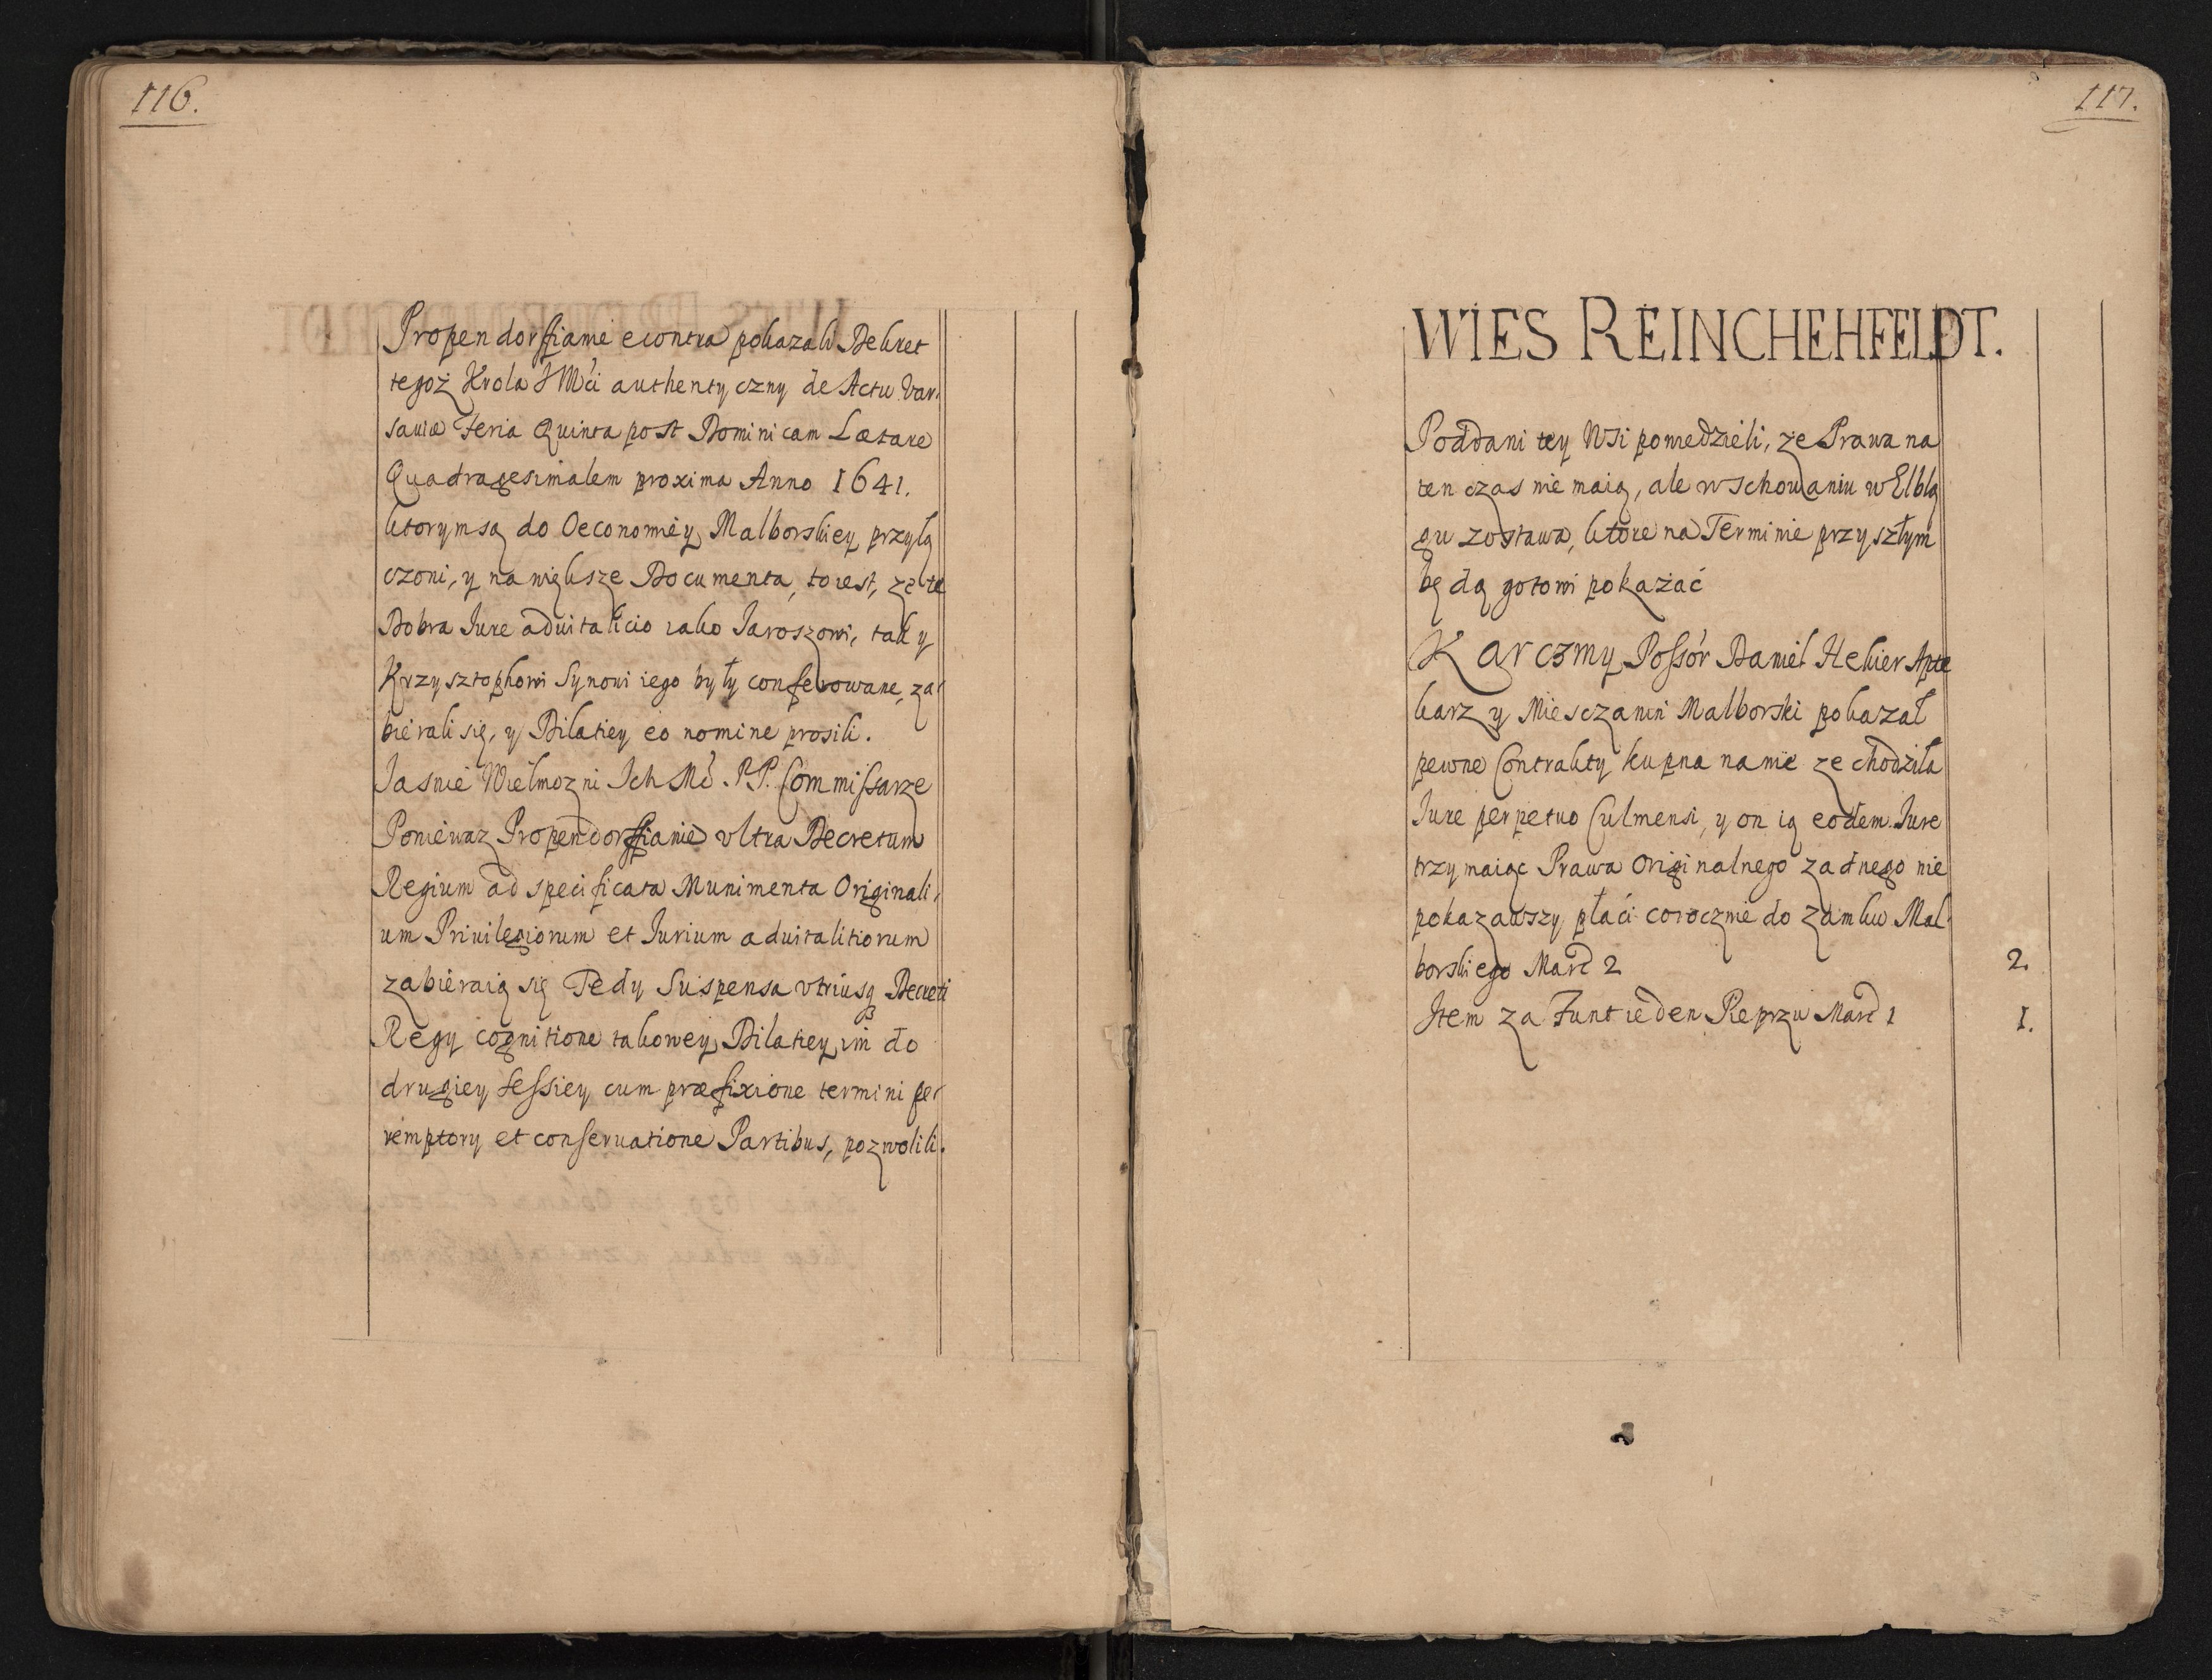 116.
Propendorffianie econtra pokazali Dekret
tegoż Krola JMći authentyczny de Actu Var-
sauiæ Feria Quinta post Dominicam Lætare
Quadragesimalem proxima Anno 1641.
ktorym są do Oeconomiey Malborskiey przyłą
czoni, y na większe Documenta, to iest, że te
Dobra Iure aduitalicio iako Iaroszowi, tak y
Krzysztophowi Synowi iego były conferowane, za-
bierali się, y Dilatiey eo nomine prosili.
Jasnie Wielmozni Ich Mć. P.P. Commissarze
Poniewaz Propendorffianie vltra Decretum
Regium ad specificata Munimenta Originali-
um Priuilegiorum et Iurium aduitalitiorum
zabieraią się Tedy Suspensa vtriusq Decreti
Regy cognitione takowey Dilatiey im do
drugiey sessiey cum præfixione termini pe-
remptory et conseruatione Partibus, pozwolili.
117.
WIES REINCHEHFELDT.
Poddani tey Wsi powiedzieli, ze Prawa na
ten czas nie maią, ale w schowaniu w Elblą
gu zostawa, ktore na Terminie przyszłym
będą gotowi pokazać
Karczmy Possor Daniel Hekier Apte
karz y Miesczanin Malborski pokazał
pewne Contrakty kupna na nie ze chodziła
Iure perpetuo Culmensi, y on ią eodem Iure
trzymaiąc Prawa Originalnego zadnego nie
pokazawszy płaći corocznie do Zamku Mal-
borskiego Marc 2 2.
Item za Funt ieden Pieprzu Marc 1 1.